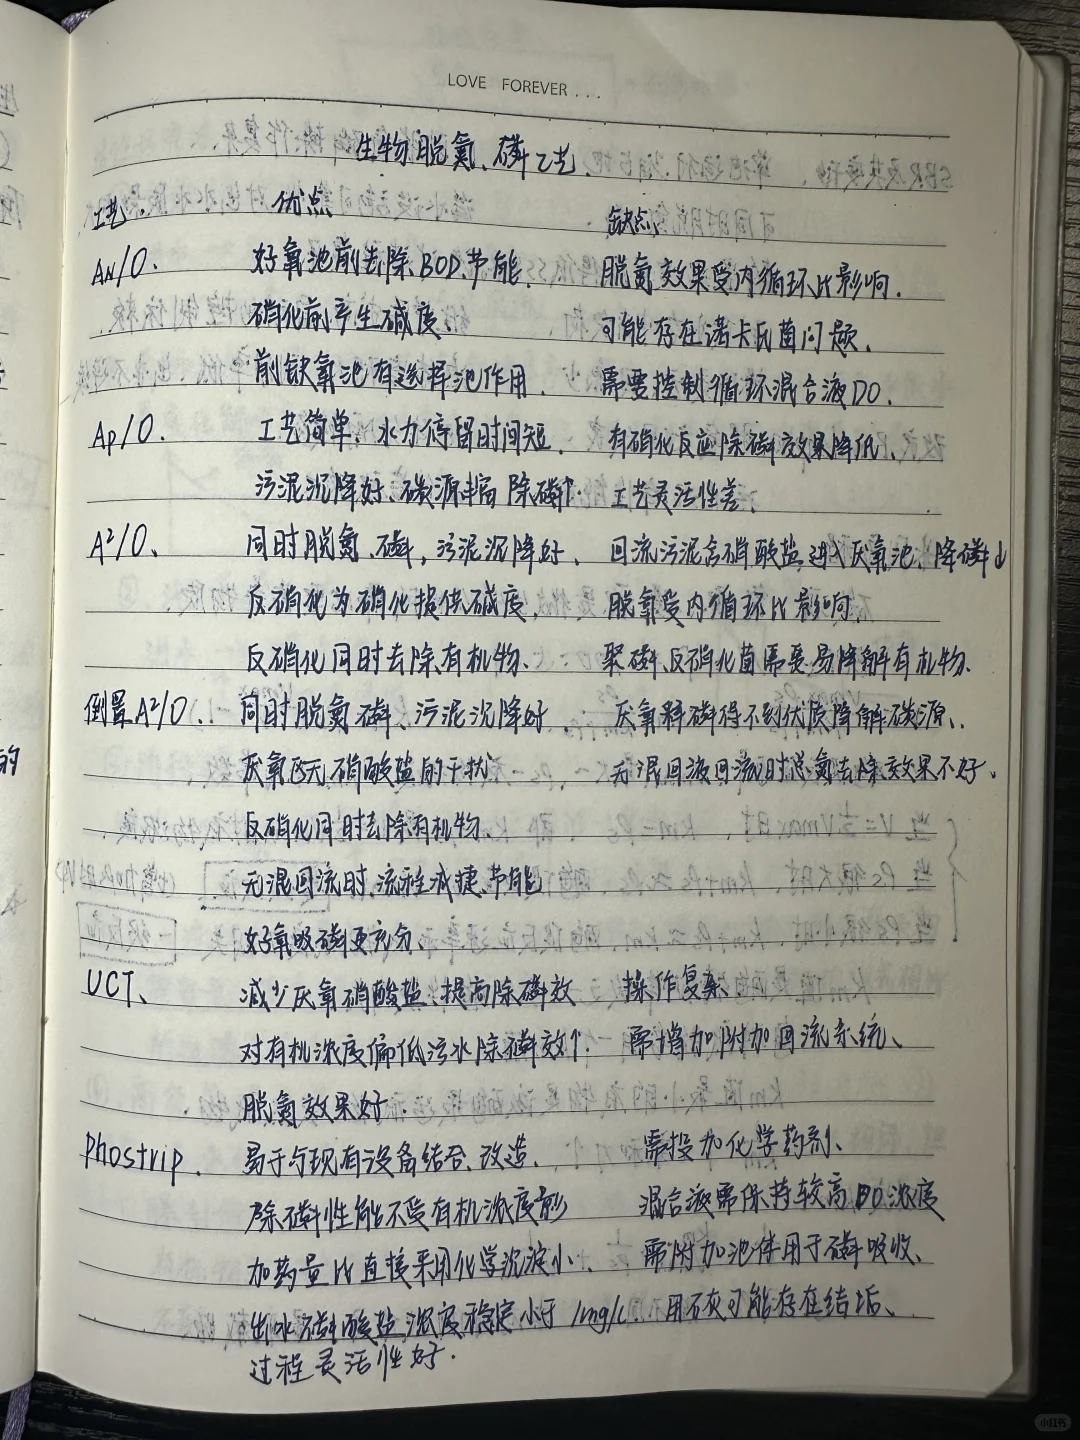 LOVE FOREVER...
生物脱氮、磷工艺
工艺. 优点 缺点
AN/O. 好氧池前去除BOD.节能. 脱氮效果受内循环比影响.
硝化前产生碱度 可能存在诺卡氏菌问题.
前缺氧池有选择池作用. 需要控制循环混合液DO.
Ap/O. 工艺简单.水力停留时间短. 有硝化反应除磷效果降低、
污泥沉降好、碳源丰富 除磷↑. 工艺灵活性差、
A²/O、 同时脱氮、磷,污泥沉降好、 回流污泥含硝酸盐,进入厌氧池、降磷↓
反硝化为硝化提供碱度、 脱氧受内循环比影响、
反硝化同时去除有机物、 聚磷、反硝化菌需要易降解有机物、
倒置A²/O. 同时脱氮磷、污泥沉降好 厌氧释磷得不到优质降解碳源、
厌氧区无硝酸盐的干扰 无混回液回流时总氮去除效果不好、
反硝化同时去除有机物
无混回流时、流程减捷.节能
好氧吸磷更充分
UCT、 减少厌氧硝酸盐.提高除磷效 操作复杂
对有机浓度偏低污水除磷效↑. 需增加附加回流系统、
脱氮效果好.
Phostrip. 易于与现有设备结合、改造、 需投加化学药剂、
除磷性能不受有机浓度影 混合液需保持较高DO浓度
加药量比直接采用化学沉淀小、 需附加池体用于磷吸收、
出水磷酸盐浓度稳定小于1mg/L. 用石灰可能存在结垢、
过程灵活性好.